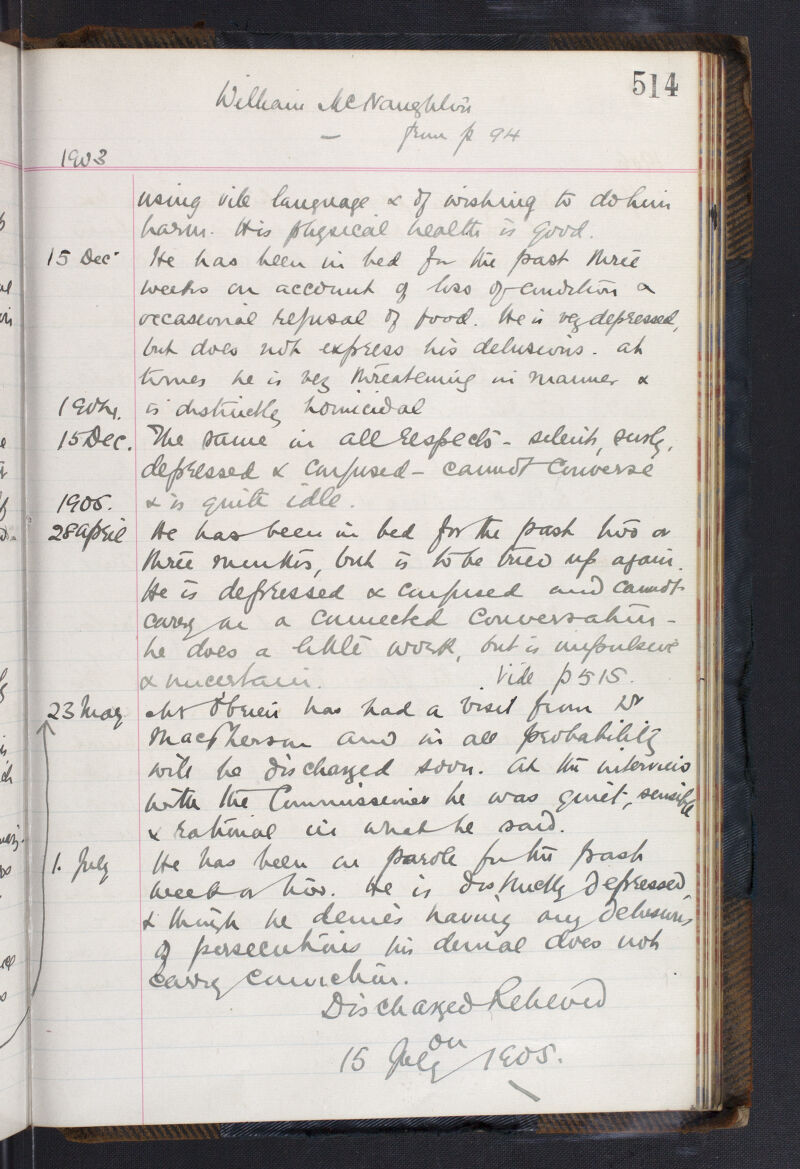 514
William McNaughton
from p 94
1903
using vile language & of wishing to do him
harm. His physical health is good.
15 Dec He has been in bed for the past three
weeks on account of loss of condition &
occasional refusal of food. He is very depressed,
but does not express his delusions. at
times he is very threatening in manner &
1904. is distinctly homicidal
15 Dec. The same in all respects - silent, surly,
depressed & confused - cannot converse
1905. & is quite idle.
28 april He has been in bed for the past two or
three months, but is to be tried up again.
He is depressed & confused and cannot
carry on a connected conversation -
he does a little work, but is impulsive
& uncertain. Vide p 515.
23 May Mr O'Brien has had a visit from Dr
MacPherson and in all probability
will be discharged soon. At the interview
with the Commissioner he was quiet, sensible
& rational in what he said.
1. July He has been on parole for the past
week or two. He is distinctly depressed
& though he denies having any delusions
of persecutions his denial does not
carry conviction.
Discharged Relieved
on
15 July 1905.